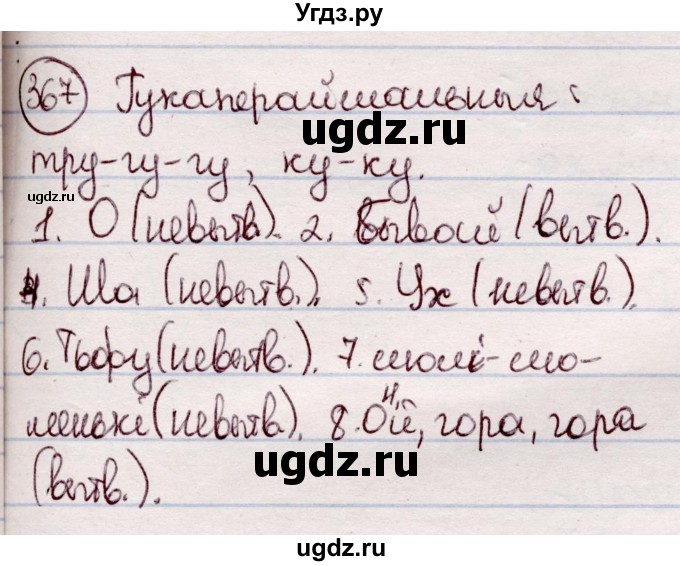 Угдз.ру
367 Гукаперайманыя:
ugdz.ru
тру-гу-гу, ку-ку.
ugdz.ru
1. О (невытв.). 2. Бывай (вытв.).
4. Ша (невытв.). 5. Ух (невытв.).
6. Тьфу (невытв.). 7.
(невытв.). 8. Ой, гора, гора
ugdz.ru
(вытв.).
ugdz.ru